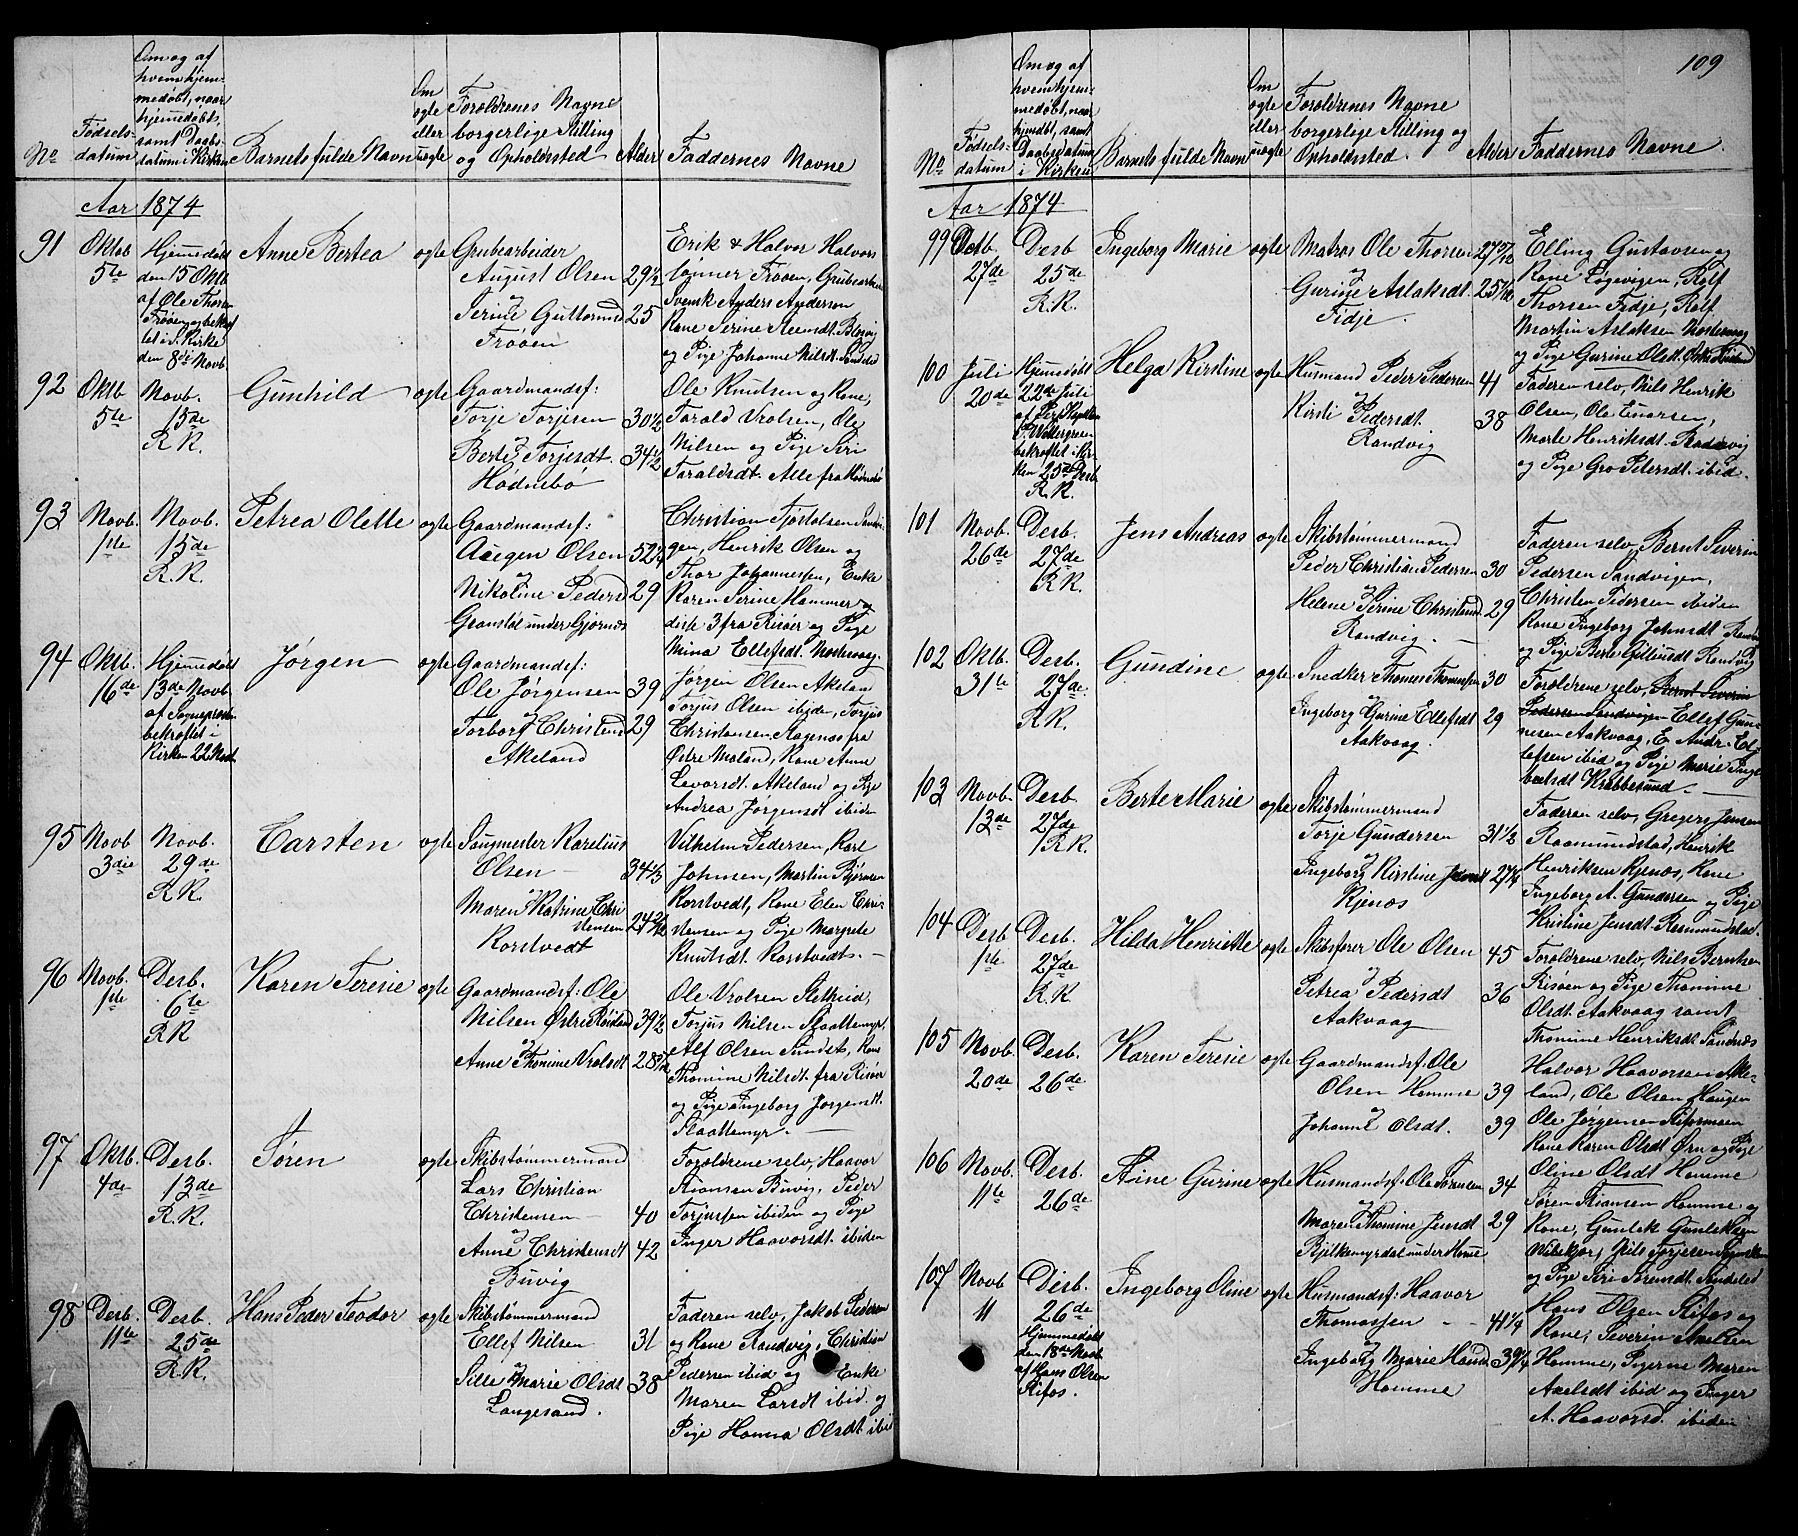 109
No
Fødsels-
datum
Om og af
hvem hjem-
medøbt, naar
hjemedøbt,
samt Daabs-
datum i Kirken
Barnets fulde Navn
Om
ægte
eller
uægte
Forældrenes Navne
borgerlige Stilling
og Opholdssted
Alder
Faddernes Navne
Aar 1874
91
Oktob
5te
Hjemmedøbt
den 15 Oktb
af Ole Thorsen
Frøen og bekræf
tet i S. Kirke
den 8de Novb.
Anne Bertea
ægte
Grubearbeider
August Olsen 29½
og
Serine Guttormsd 25
Frøen
Erik & Halvor Halvors
sønner Frøen, Grubearb
Svensk Anders Anderson
Kone Serine
og Pige Johanne Nilsdt.
92
Oktb
5te
Novb.
15de
R.K.
Gunhild
ægte
Gaardmandsf:
Torje Torjesen 30½
og
Berte Torjesdt. 34½
Hødnebø
Ole Knutsen og Kone,
Tarald Vrolsen, Ole
Nilsen og Pige Siri
Taraldsdt. Alle fra Hødnebø
93
Novb.
1ste
Novb.
15de
R.K.
Petrea Olette
ægte
Gaardmandsf:
Aaegen Olsen 52¼
og
Nikoline Pedersd 29
Granstøl under Gjernes
Christian Tjostolsen Sandvi
gen, Henrik Olsen og
Thor Johannessen, Enke
Karen Serine Hammer og
disse 3 fra Risøer og Pige
Mina Ellefsdt. Mostervaag.
94
Oktb.
16de
Hjemmedøbt
13de Novb.
af Sognepræsten
bekræftet i
Kirken 22 Novb
Jørgen
ægte
Gaardmandsf:
Ole Jørgensen 39
og
Torborg Christensd 29
Akeland
Jørgen Olsen Akeland
Torjus Olsen ibiden, Torjus
Christensen Aagenæs fra
Østre Moland, Kone Anne
Levorsdt. Akeland og Pige
Andrea Jørgensdt ibiden
95
Novb
3die
Novb.
29de
R.K.
Carsten
ægte
Saugmester Karelius
Olsen 34⅓
og
Maren Katrine Chri
stensen
Rorstvedt
Vilhelm Pedersen, Karl
Johnsen, Martin Bjørnsen
Rorstvedt, Kone Elen Chri-
stensen og Pige Margrete
Knutsdt. Rorstvedt.
96
Novb.
1ste
Desb.
6te
R.K
Karen Teresie
ægte
Gaardmandsf: Ole
Nilsen Østre Røisland 39½
og
Anne Thomine Vrolsdt
Ole Vrolsen Sletheid,
Torjus Nilsen Slaattemyr,
Alf Olsen Sundet, Kone
Thomine Nilsdt. fra Risøer
og Pige Ingeborg Jørgensdt.
Slaattemyr.
97
Oktb.
4de
Desb.
13de
R.K.
Søren
ægte
Skibstømmermand
Lars Christian
Christensen 40
og
Anne Christensdt 42
Buvig
Forældrene selv, Haavor
Stiansen Buvig, Peder
Torjussen ibiden og Pige
Inger Haavorsdt. ibiden
98
Desb.
11te
Desb.
25de
R.K.
Hans Peder Teodor
ægte
Skibstømmermand
Ellef Nilsen 31
og
Sille Marie Olsdt 38
Langesand.
Faderen selv, Jakob Pedersen
og Kone Randvig, Christian
Pedersen ibid og Enke
Maren Larsdt ibid. og
Pige Hanna Olsdt ibid
No
Fødsels-
datum
Om og af
hvem hjem-
medøbt, naar
hjemdøbt, samt
Daabsdatum
i Kirken
Barnets fulde Navn
Om
ægte
eller
uægte
Forældrenes Navne
borgerlige Stilling og
Opholdssted.
Alder
Faddernes Navne
Aar 1874
99
Octb.
27de
Desb
25de
R.K.
Ingeborg Marie
ægte
Matros Ole Thorsen
og
Gurine Aslaksdt.
Fidje.
Elling Gustavsen og
Kone Løgevigen, Rolf
Thorsen Fidje, Rolf
Martin Aslaksen Mostervaag
og Pige Gurine Olsdt.
100
Juli
20de
Hjemmedøbt
22de Juli
af Per Kapellan
P. Wettergreen
bekræftet i Kir-
ken 25de Desb.
R.K.
Helga Kirstine
ægte
Husmand Peder Pedersen 41
og
Kirsti Pedersdt. 38
Randvig
Faderen selv, Nils Henrik
Olsen, Ole Einarsen,
Marte Henriksdt. Randvig
og Pige Gro Petersdt. ibid.
101
Novb.
26de
Desb.
27de
R.K.
Jens Andreas
ægte
Skibstømmermand
Peder Christian Pedersen 30
og
Helene Serine Christensd 29
Randvig.
Faderen selv, Bernt Severin
Pedersen Sandvigen,
Christen Pedersen ibiden
Kone Ingeborg Johnsdt Randvig
og Pige Berte Gulliksdt Randvig
102
Oktb.
31te
Desb.
27de
R.K.
Gundine
ægte
Snedker Thomas Thomassen 30
og
Ingeborg Gurine Ellefsdt 29
Aakvaag.
Forældrene selv, Bernt Severin
Pedersen Sandvigen Ellef Gun-
nesen Aakvaag, E. Andr. El-
lefsen ibid og Pige Marie Inge
bretsdt Krabbesund
103
Novb.
13de
Desb.
27de
R.K.
Berte Marie
ægte
Skibstømmermand
Torje Gundersen 31½
og
Ingeborg Kirstine Jensdt 27¼
Kjenos
Faderen selv, Gregers Jensen
Rasmundstad, Henrik
Henriksen Kjenos, Kone
Ingeborg A. Gundersen og Pige
Kristine Jensdt. Rasmundstad.
104
Desb
1ste
Desb.
27de
R.K
Hilda Henriette
ægte
Skibsfører Ole Olsen 45
og
Petrea Pedersdt 36
Aakvaag
Forældrene selv, Nils Berntsen
Risøen og Pige Thomine
Olsdt. Aakvaag samt
Thomine Henriksdt. Sandnæs
105
Novb.
20de
Desb.
26de
Karen Teresie
ægte
Gaardmandsf. Ole
Olsen Homme 39
og
Johanne Olsdt. 39
Halvor Haavorsen Ake-
land, Ole Olsen Haugen
Ole Jørgensen
Kone Karen Olsdt Ørn og Pige
Oline Olsdt Homme
106
Novb.
11te
Desb.
26de
Stine Gurine
ægte
Husmandsf: Ole Sørensen 34
og
Maren Thomine Jensdt 29
Bjelkemyrdal under Home
Søren Stiansen Homme og
Kone, Gunlek Gunleksen
Vibekjær, Nils Torjesen
og Pige Siri Svendsdt. Sandsted
107
Novb
11
Desb.
26de
Hjemmedøbt
den 18de Novb
af Hans Olsen
Rifos.
Ingeborg Oline
ægte
Husmandsf: Haavor
Thomassen 41¼
og
Ingeborg Marie Hansd 39¼
Homme
Hans Olsen Rifos og
Kone, Severin Axelsen
Homme, Pigerne Maren
Axelsdt ibid og Inger
A. Haavorsd. ibiden